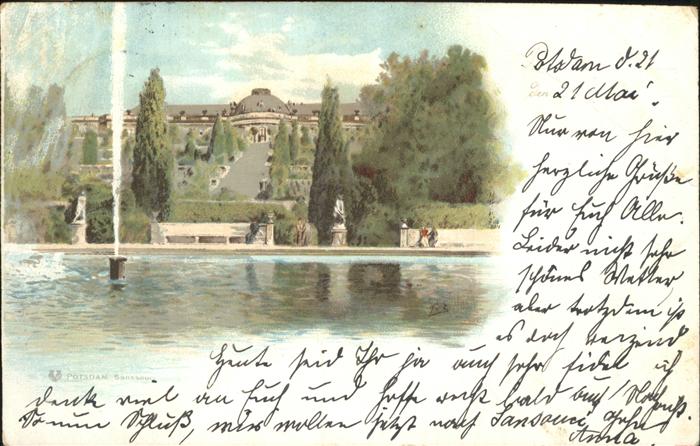 Potsdam d. 21
den 21 Mai.
Nur von hier
herzliche Grüße
für Euch Alle.
Leider nicht sehr
schönes Wetter
aber trotzdem is
es doch reizend
Heute seid Ihr ja auch sehr fidel ich
denke viel an Euch und hoffe recht bald auf
So nun Schluß, wir wollen jetzt nach Sansouci,
Anna
POTSDAM. Sanssouci